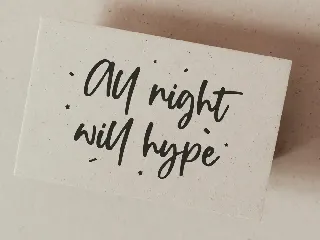 All night
will hype